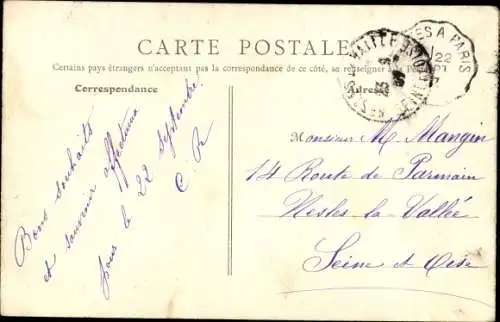 CARTE POSTALE
Certains pays étrangers n'acceptant pas la correspondance de ce côté, se renseigner à la
Correspondance
Adresse
Bons souhaits
et souvenir affectueux
le 22 Septembre
C. R
Monsieur M. Mangin
14 Route de Parmain
Nesles-la-Vallée
Seine et Oise
ES A PARIS
22
SEINE-ET-OISE
25